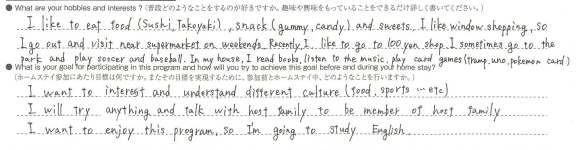 ● What are your hobbies and interests ? (普段どのようなことをするのが好きですか。趣味や興味をもっていることをできるだけ詳しく書いてください。)
I like to eat food (Sushi, Takoyaki), snack (gummy, candy) and sweets. I like window shopping, so
I go out and visit near supermarket on weekends. Recently, I like to go to 100 yen shop. I sometimes go to the
park and play soccer and baseball. In my house, I read books, listen to the music, play card games (tramp, uno, pokemon card)
● What is your goal for participating in this program and how will you try to achieve this goal before and during your home stay?
(ホームステイ参加にあたり目標は何ですか。またその目標を実現するために、参加前とホームステイ中、どのようなことを行いますか。)
I want to interest and understand different culture (food, sports … etc)
I will try anything and talk with host family to be member of host family
I want to enjoy this program, so I'm going to study English.